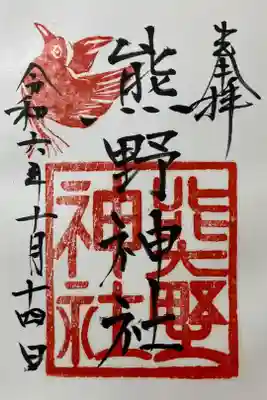 奉拝
熊野神社
熊野神社
令和六年十月十四日